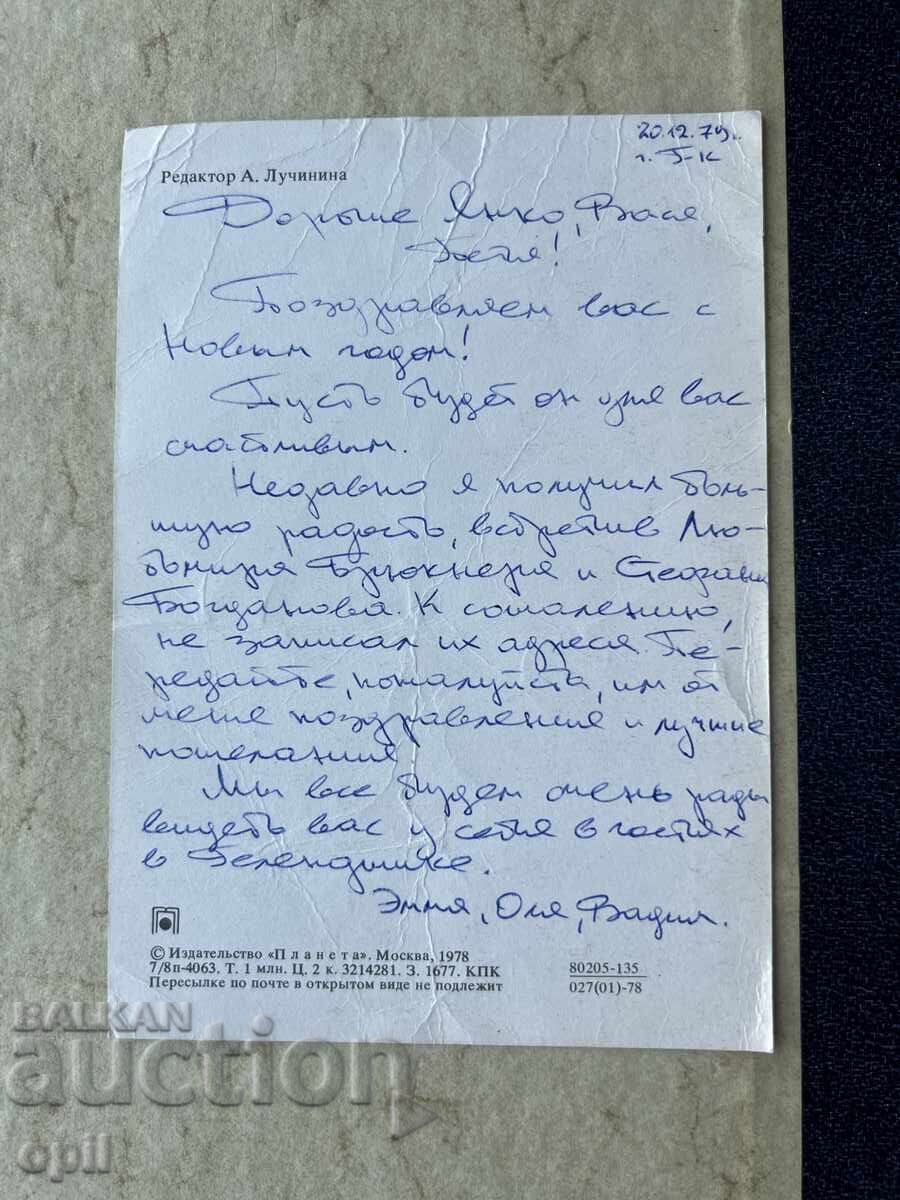 20.12.79г.
г. Г-к
Редактор А. Лучинина
Дорогие Янко, Вася,
Поздравляем вас с
Новым годом!
Пусть будет он для вас
счастливым.
Недавно я получил боль-
шую радость, встретив Лю-
бомира Брюкнера и Стефана
Богданова. К сожалению,
не записал их адреса. Пе-
редайте, пожалуйста, им от
меня поздравления и лучшие
пожелания.
Мы все будем очень рады
видеть вас у себя в гостях
в Геленджике.
Эмма, Оля, Вадим.
© Издательство «Планета». Москва, 1978
7/8п-4063. Т. 1 млн. Ц. 2 к. 3214281. З. 1677. КПК
Пересылке по почте в открытом виде не подлежит
80205-135
027(01)-78
BALKAN
auction
opil